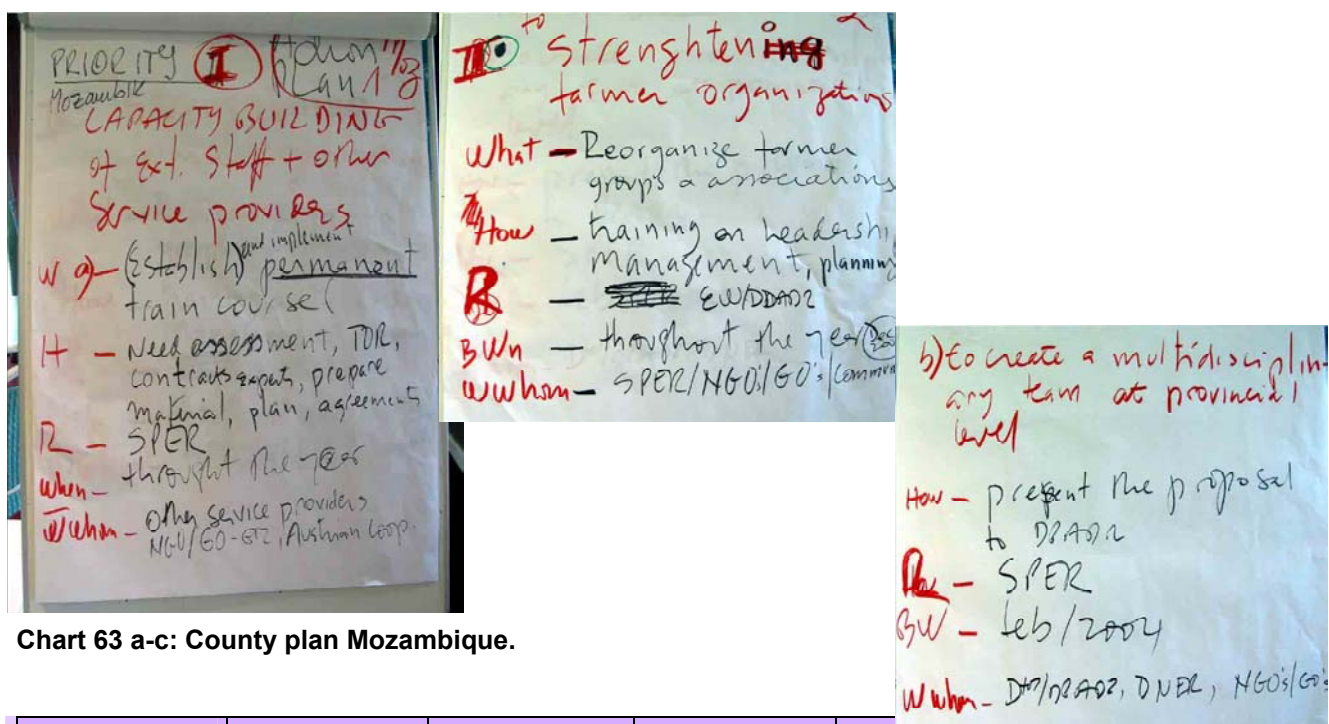 PRIORITY I Action
Mozambik Plan 1
CAPACITY BUILDING
of Ext. Staff + other
Service providers
W a) — (Establish) and implement permanent
train course (
H — Need assessment, TOR,
contracts experts, prepare
material, plan, agreements
R — SPER
when — throught the year
Wwhom — Other service providers
NGO/GO-GTZ, Austrian Coop.
II to strenghtening
farmer organizations
What — Reorganize farmer
groups & associations
How — training on Leadershi
management, planning
R — EW/DDADR
BWn — throughout the year
Wwhom — SPER/NGO's/GO's/
b) to create a multidisciplin-
ary team at provincial
level
How — present the proposal
to DPADR
R — SPER
BW — feb/2004
Wwhom — DPADR, DNER, NGO's/GO's
Chart 63 a-c: County plan Mozambique.